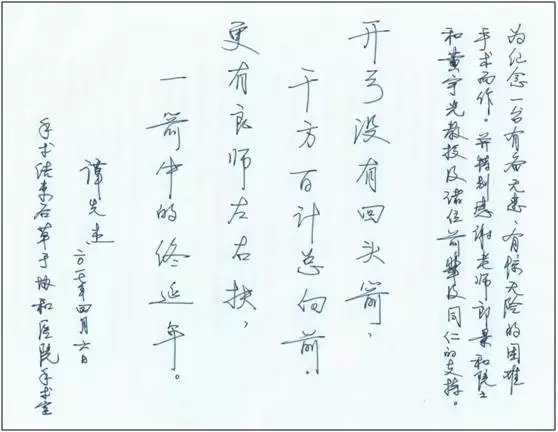 为纪念一台有备无患、有惊无险的困难
手术而作。并特别感谢老师郎景和院士
和黄宇光教授及诸位前辈及同仁的支持。
开弓没有回头箭，
千方百计总向前。
更有良师左右扶，
一箭中的终延年。
谭先杰
二〇一七年四月六日
手术结束后草于协和医院手术室